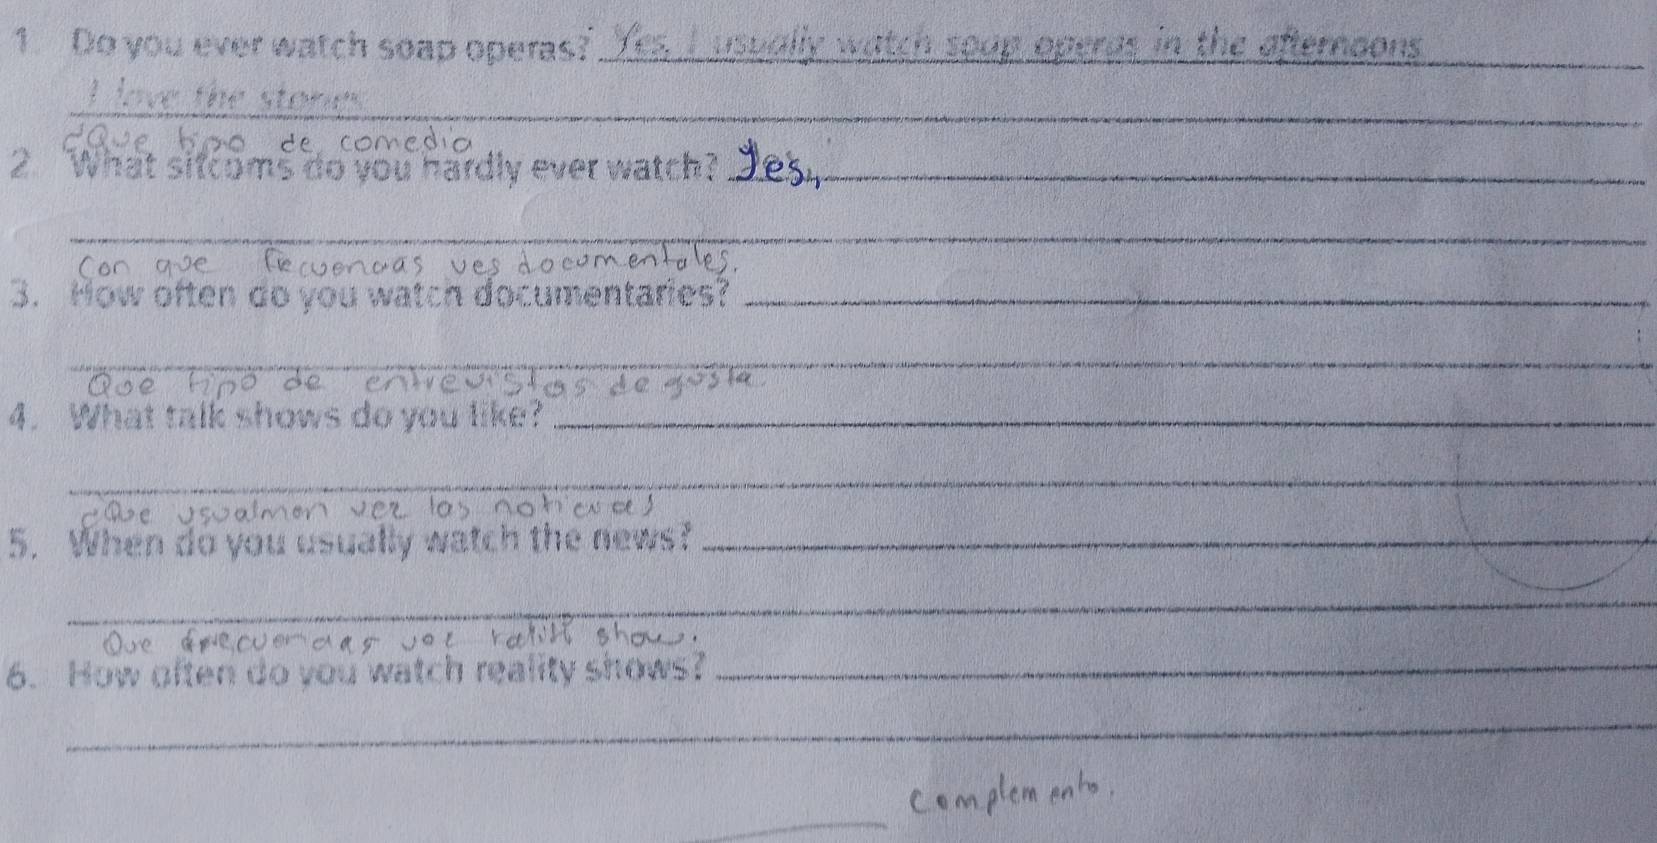 1. Do you ever watch soap operas? Yes. I usually watch soap operas in the afternoons
I love the stories
¿Que tipo de comedia
2. What sitcoms do you hardly ever watch? Yes,
con que frecuencias ves documentales.
3. How often do you watch documentaries?
Que tipo de entrevistas de gusta
4. What talk shows do you like?
¿Que usualmen vez las noticias
5. When do you usually watch the news?
Que frecuencias show.
6. How often do you watch reality shows?
complemento.